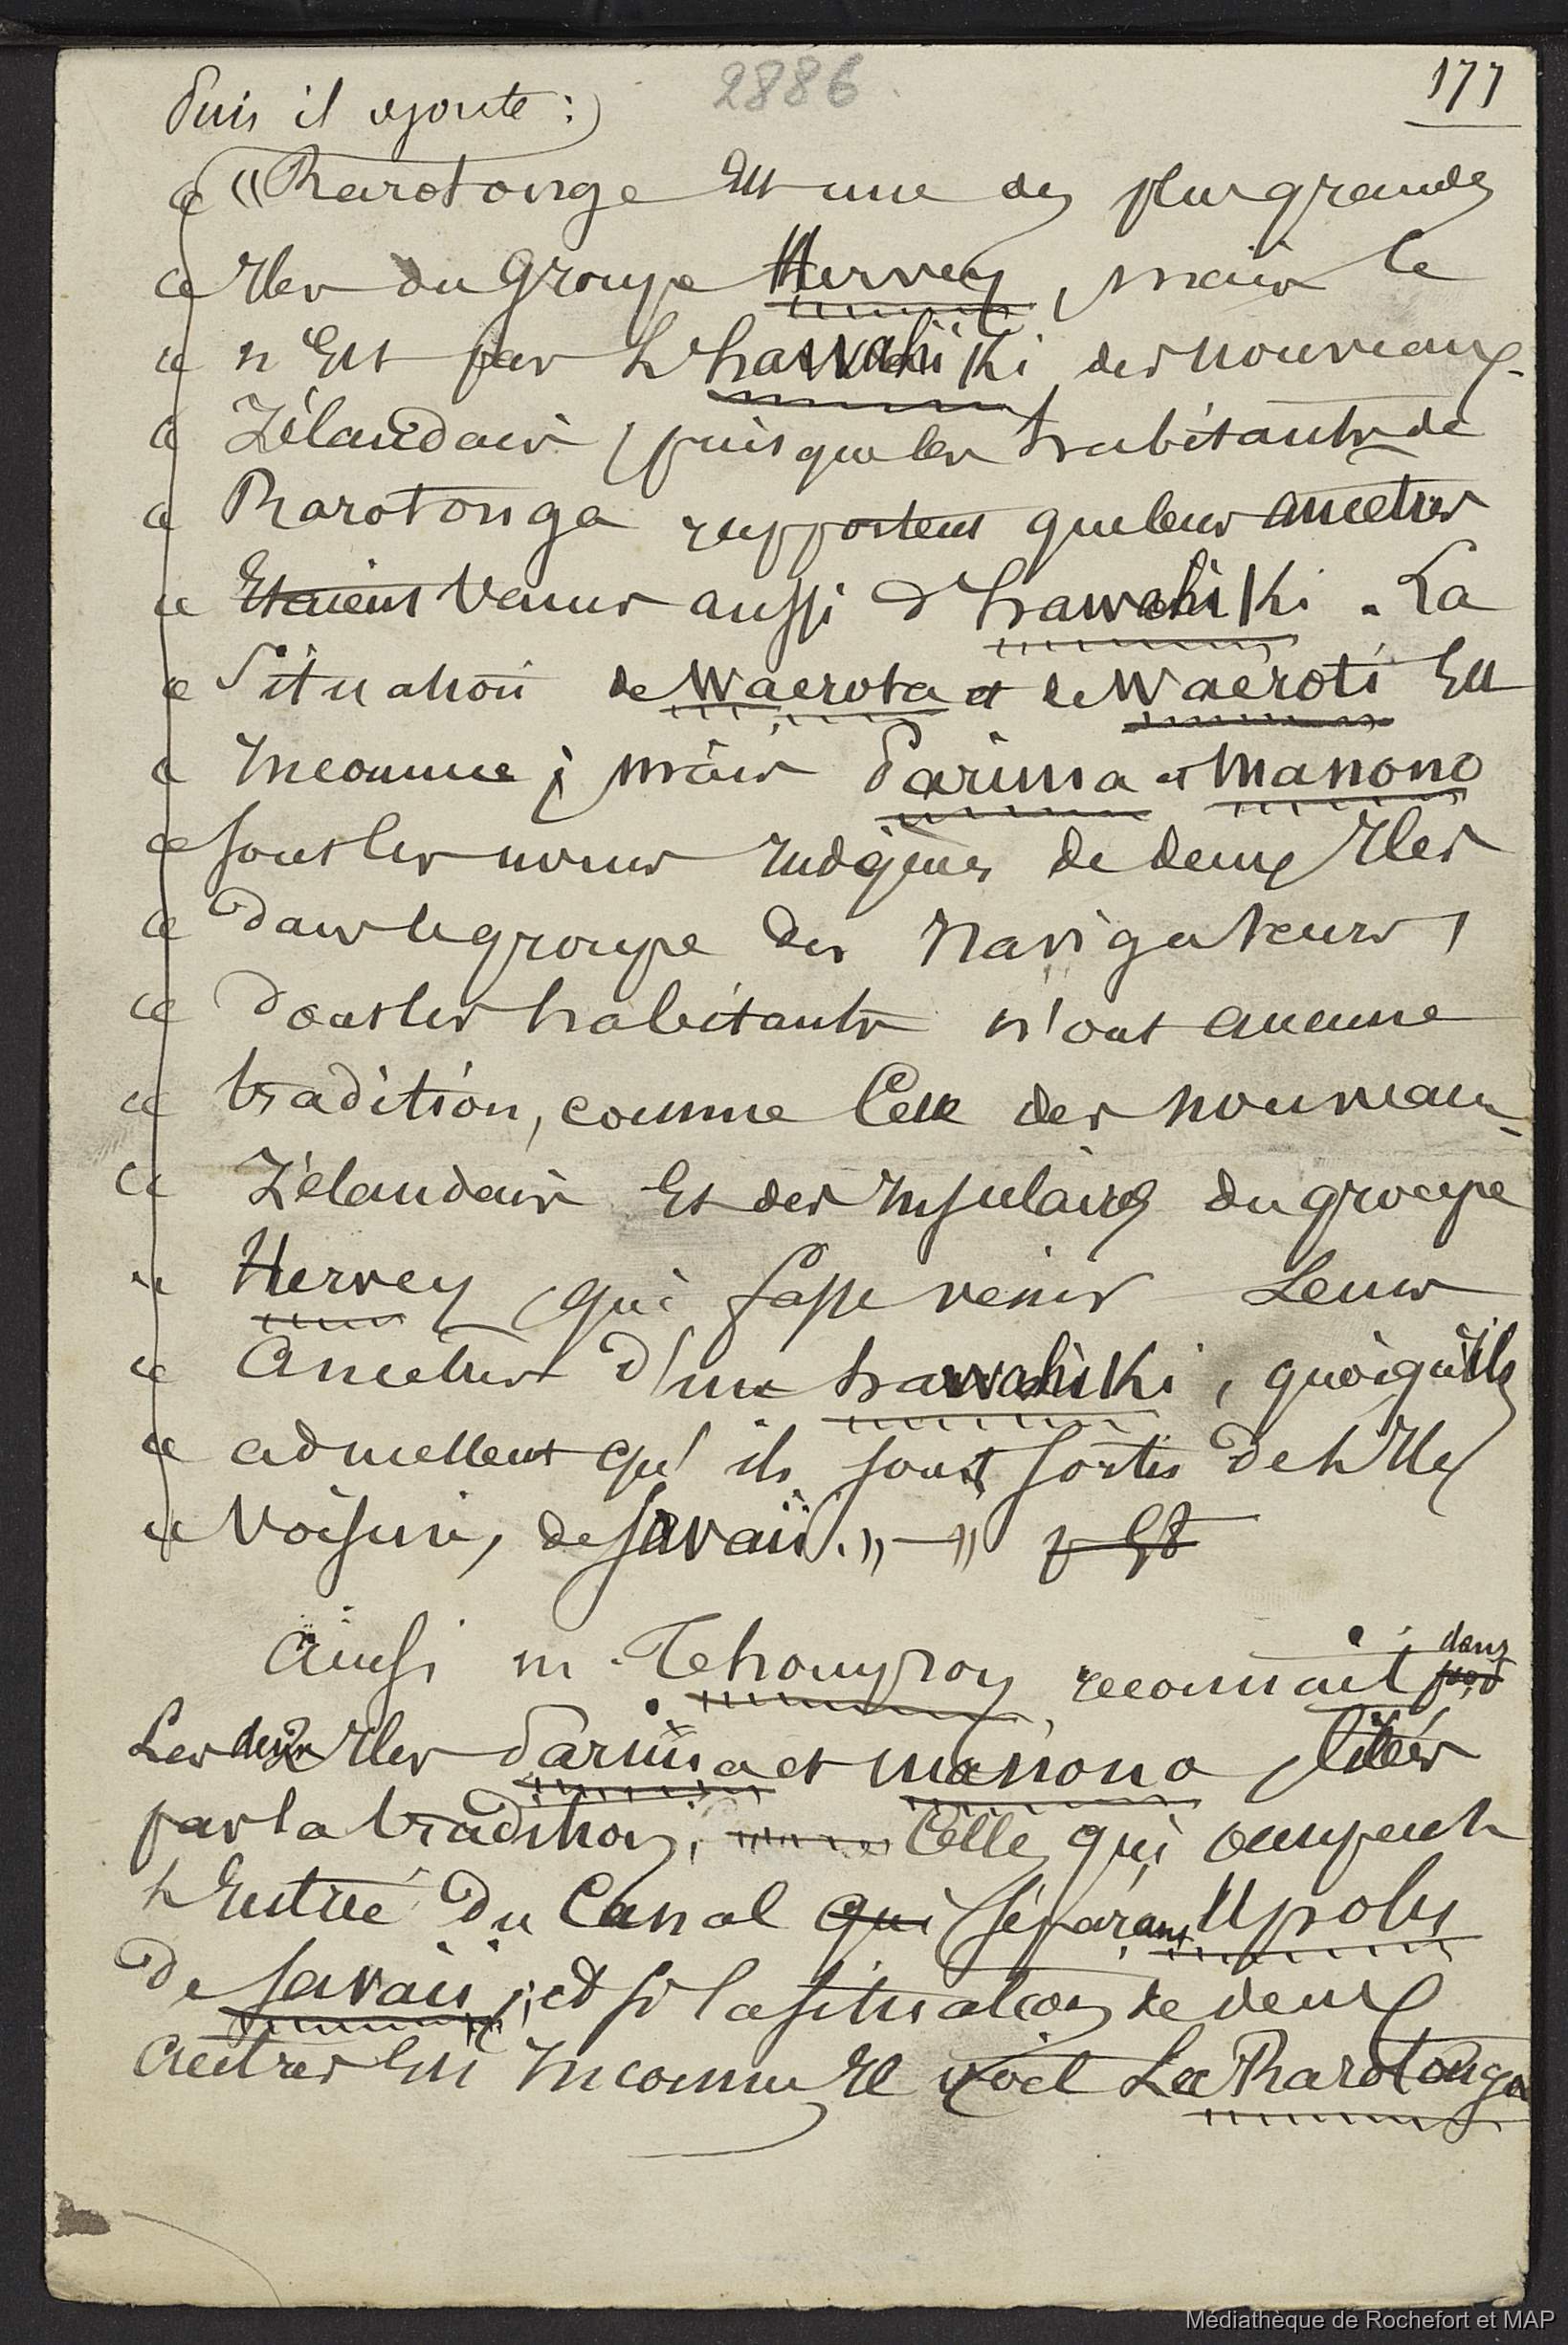 2886
177
Puis il ajoute :
« "Rarotonga Est une des plus grandes
« Iles du Groupe Hervey, mais ce
« n'Est pas L'hawahiki des nouveaux-
« Zélandais, puisque les habitants de
« Rarotonga rapportent que leurs ancetres
« Etaient Venus aussi d'hawahiki. La
« Situation de Waerota et de Waéroti Est
« Inconnue ; mais Parima et Manono
« sont les noms Indigènes de deux Iles
« dans le groupe des Navigateurs,
« dont les habitants n'ont aucune
« tradition, comme Celle des nouveaux-
« Zélandais Et des Insulaires du groupe
« Hervey, qui fasse venir Leurs
« Ancêtres d'une hawahiki, quoiqu'ils
« admettent qu'ils sont sortis de l'Ile
« Voisine, de Savaii. » — » p 58
Ainsi m. Tehomyson, reconnait dans
Les deux Iles Parima et manono, Citées
par la tradition, Celles qui occupent
L'Entrée du Canal qui séparant Upolu
de Savaii ; et si la situation de deux
autres Est Inconnue, Il voit La Rarotonga
Médiathèque de Rochefort et MAP